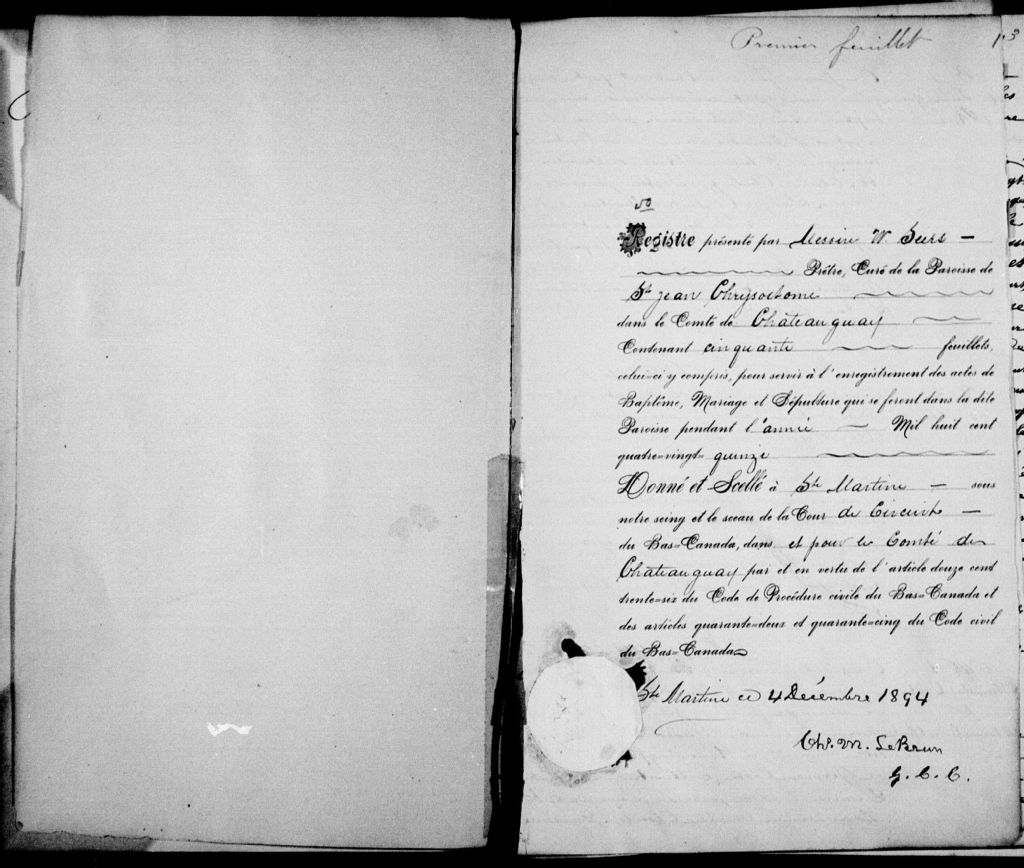 Premier feuillet
50
Registre présenté par Messire W. Seers
Prêtre, Curé de la Paroisse de
St. Jean Chrysostome
dans le Comté de Châteauguay
Contenant cinquante feuillets,
celui-ci y compris, pour servir à l'enregistrement des actes de
Baptême, Mariage et Sépulture qui se feront dans la dite
Paroisse pendant l'année Mil huit cent
quatre-vingt-quinze
Donné et Scellé à Ste Martine sous
notre seing et le sceau de la Cour de Circuit
du Bas-Canada, dans et pour le Comté de
Chateauguay par et en vertu de l'article douze cent
trente-six du Code de Procédure civile du Bas-Canada et
des articles quarante-deux et quarante-cinq du Code civil
du Bas-Canada
Ste Martine ce 4 Décembre 1894
Chs. M. LeBrun
G. C. C.